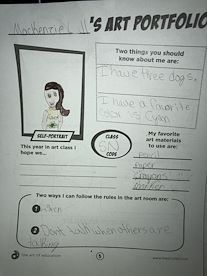 MacKenzie
'S ART PORTFOLIO
Two things you should
know about me are:
I have three dogs.
I have a favorite
color is Cyan
SELF-PORTRAIT
CLASS
5N
CODE
My favorite
art materials
to use are:
This year in art class I
hope we...
Pencil
Paper
crayons
marker
Two ways I can follow the rules in the art room are:
1
2
Dont talk when others are
talking
the art of education
5